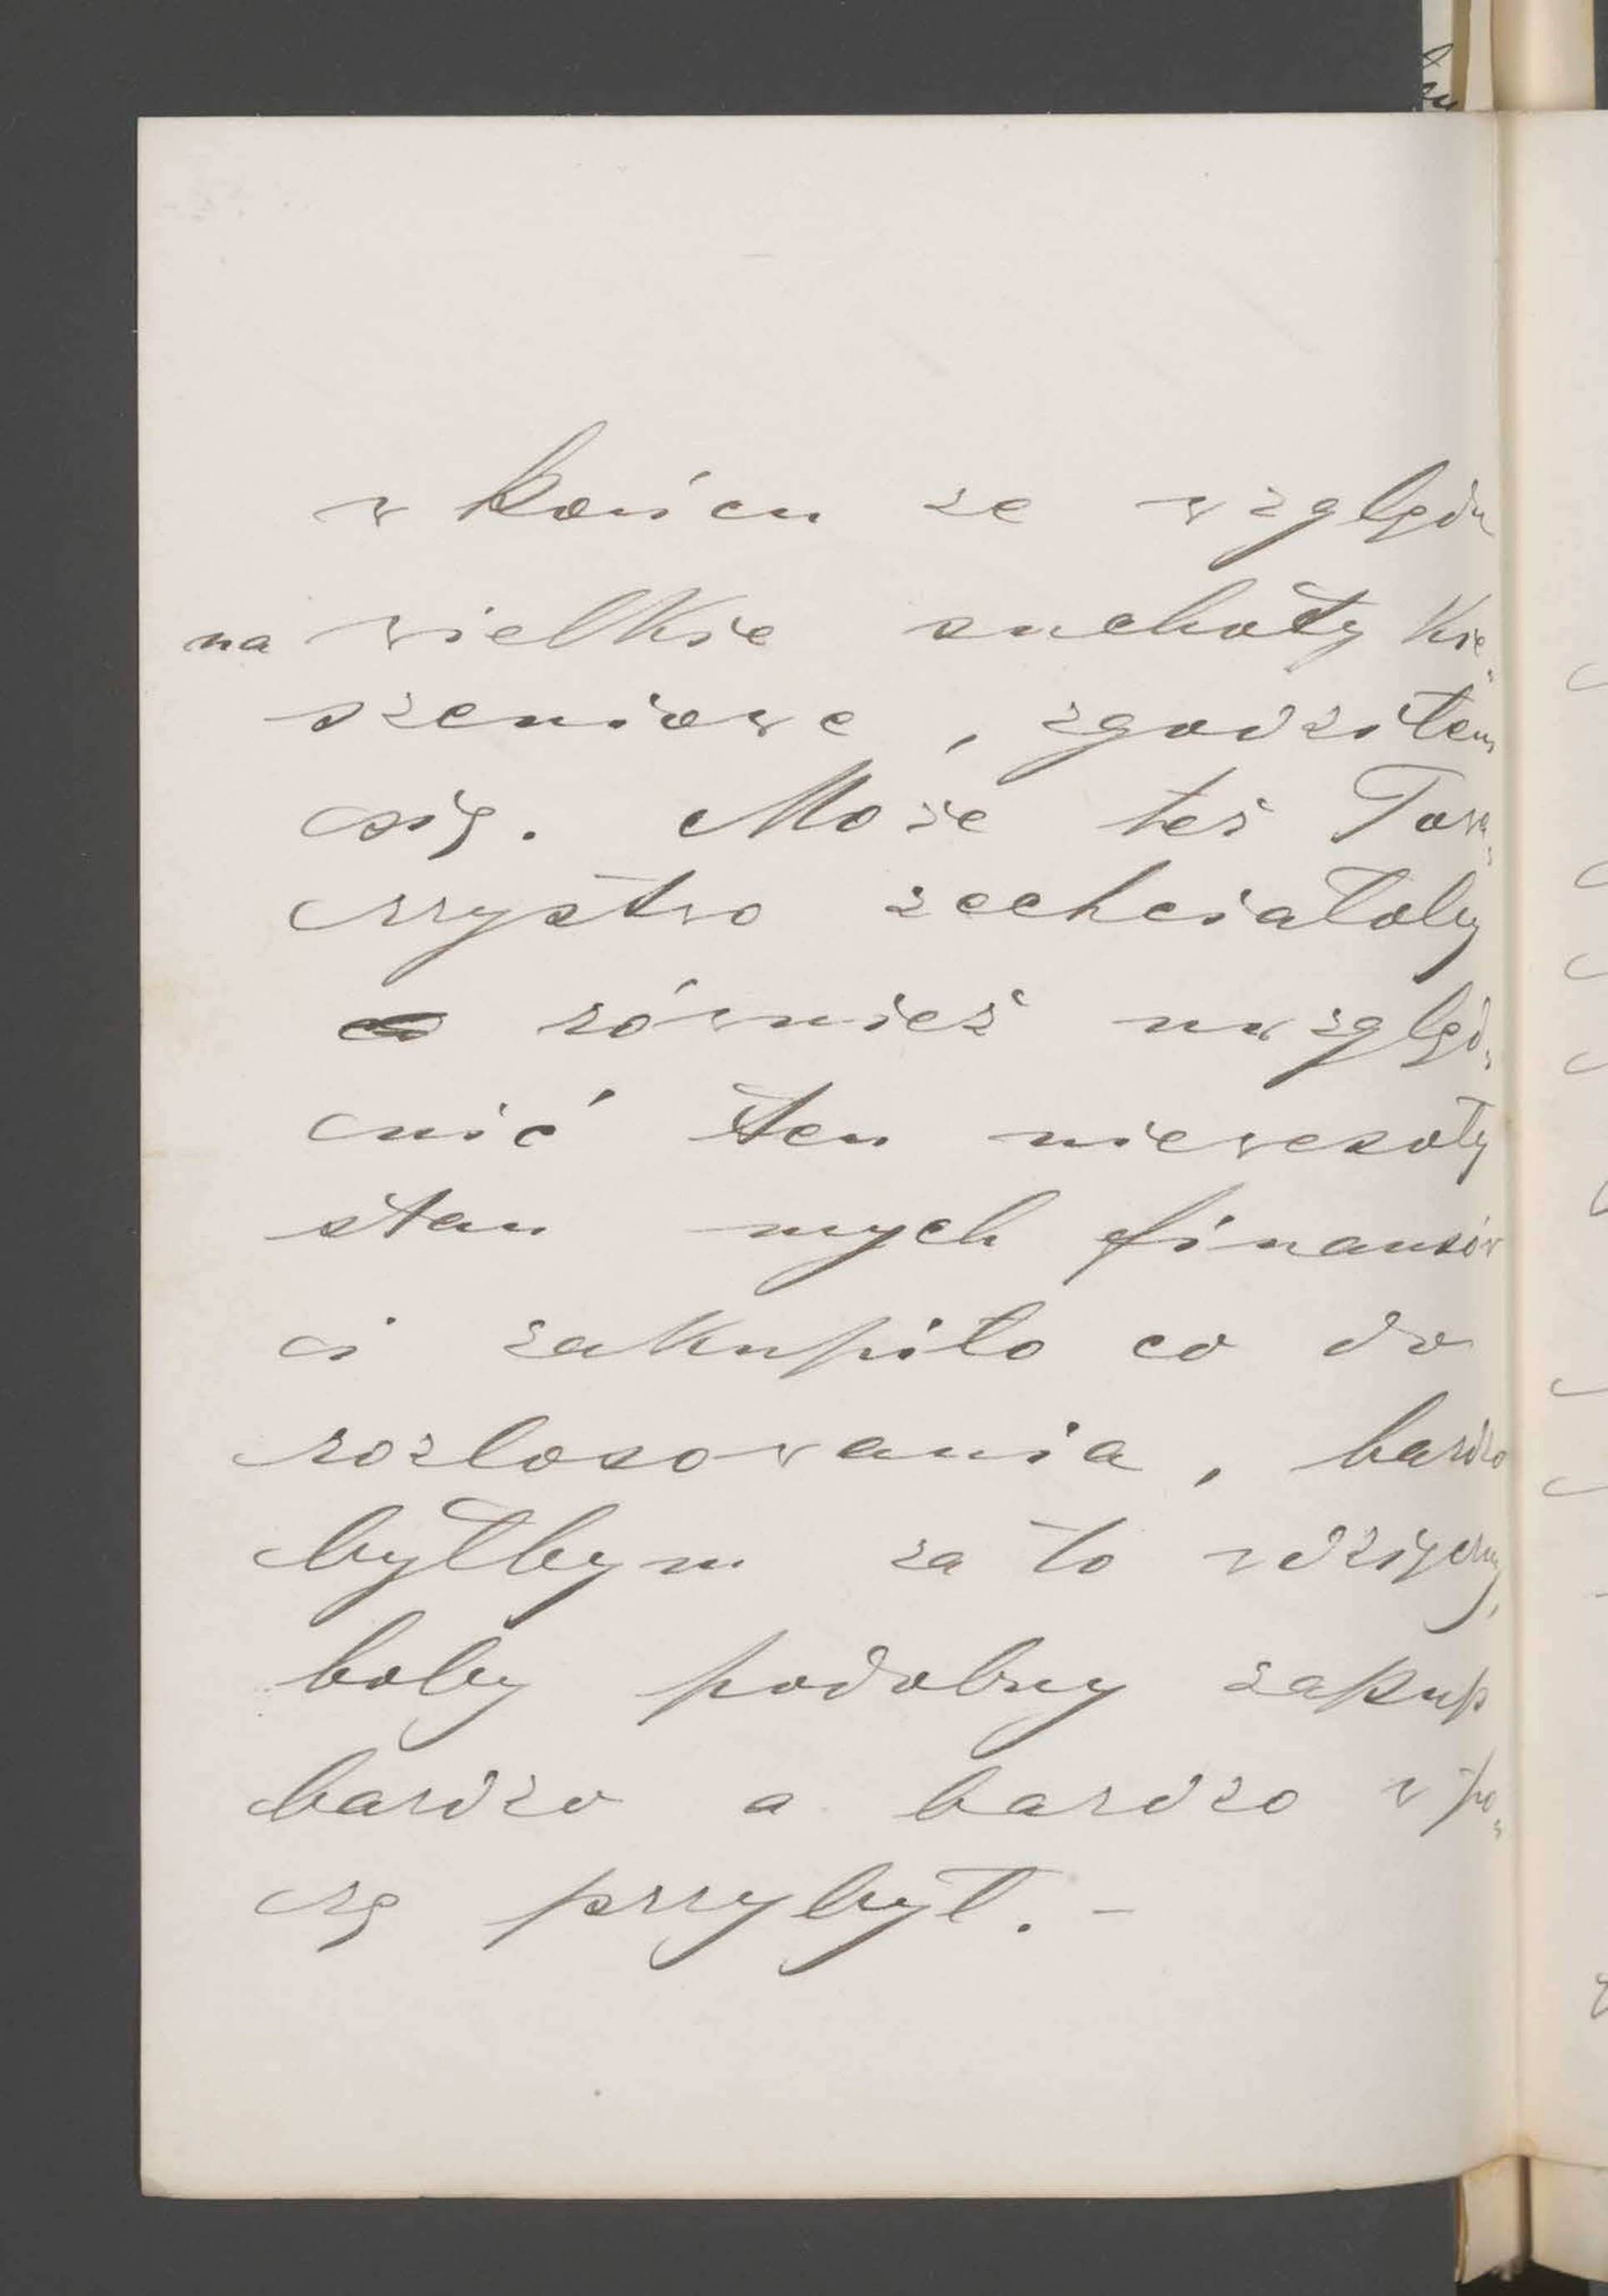 w końcu ze względu
na wielkie suchoty kie-
szeniowe, zgodziłem
się. Może też Towa-
rzystwo zechciałoby
również uwzględ-
nić ten niewesoły
stan mych finansów
i zakupiło co do
rozlosowania, bardzo
byłbym za to wdzięczny,
boby podobny zakup
bardzo a bardzo w po-
rę przybył. –